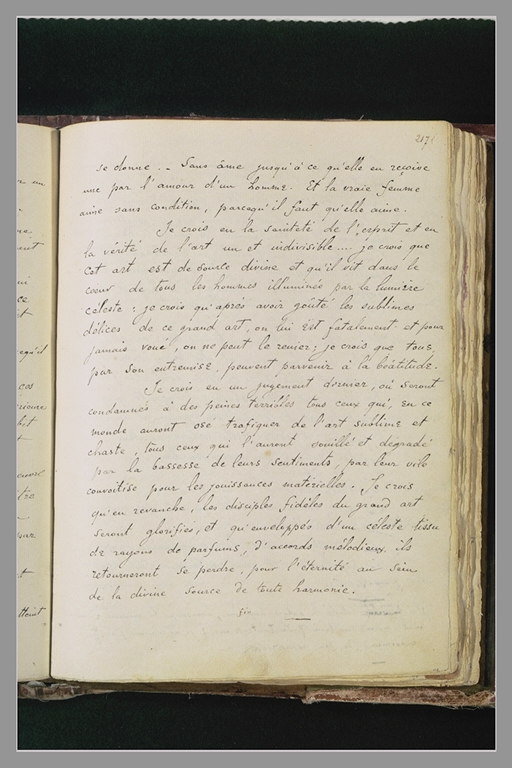 217
se donne .. Sans âme jusqu'à ce qu'elle en reçoive
une par l'amour d'un homme. Et la vraie femme
aime sans condition, parcequ'il faut qu'elle aime.
Je crois en la sainteté de l'esprit et en
la vérité de l'art un et indivisible.... je crois que
cet art est de source divine et qu'il vit dans le
coeur de tous les hommes illuminés par la lumière
céleste ; je crois qu'après avoir goûté les sublimes
délices de ce grand art, on lui est fatalement et pour
jamais voué, on ne peut le renier; je crois que tous
par son entremise, peuvent parvenir à la béatitude.
Je crois en un jugement dernier, où seront
condamnés à des peines terribles tous ceux qui, en ce
monde auront osé trafiquer de l'art sublime et
chaste tous ceux qui l'auront souillé et dégradé
par la bassesse de leurs sentiments, par leur vile
convoitise pour les jouissances matérielles. Je crois
qu'en revanche, les disciples fidèles du grand art
seront glorifiés, et qu'enveloppés d'un céleste tissu
de rayons de parfums, d'accords mélodieux, ils
retourneront se perdre, pour l'éternité au sein
de la divine source de toute harmonie.
fin